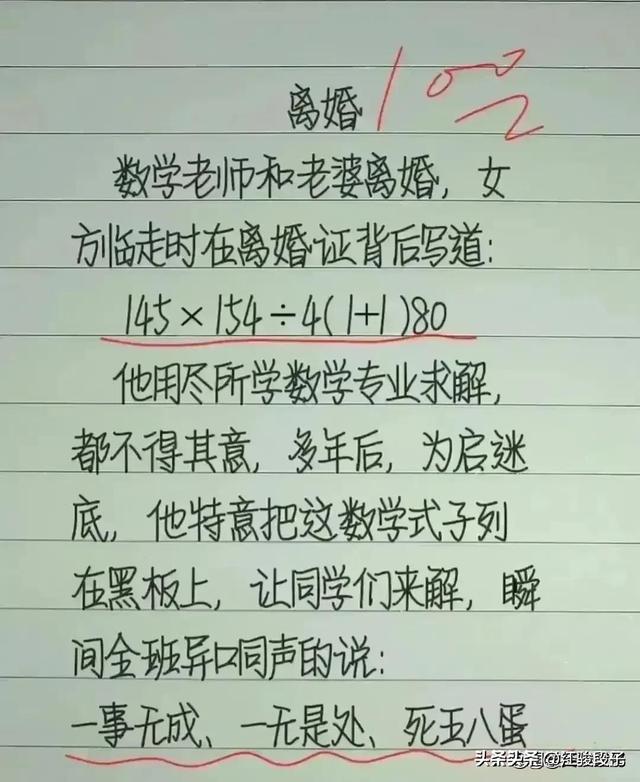 离婚 100
数学老师和老婆离婚，女
方临走时在离婚证背后写道：
145×154÷4(1+1)80
他用尽所学数学专业求解，
都不得其意，多年后，为启迷
底，他特意把这数学式子列
在黑板上，让同学们来解，瞬
间全班异口同声的说：
一事无成、一无是处、死王八蛋
头条 @汪骏段子